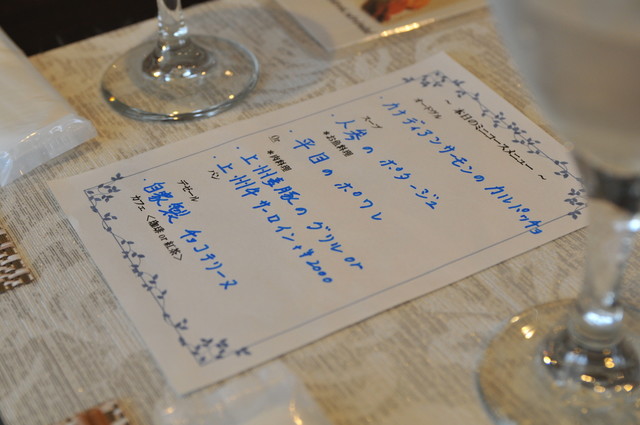 ～ 本日のミニコースメニュー ～
オードブル
・カナディアンサーモンの カルパッチョ
スープ
・人参の ポタージュ
*お魚料理
・平目の ポワレ
Or
*肉料理
・上州麦豚の グリル or
・上州牛 サーロイン+¥2000
パン
デセール
・自家製 チョコテリーヌ
カフェ <珈琲 or 紅茶>